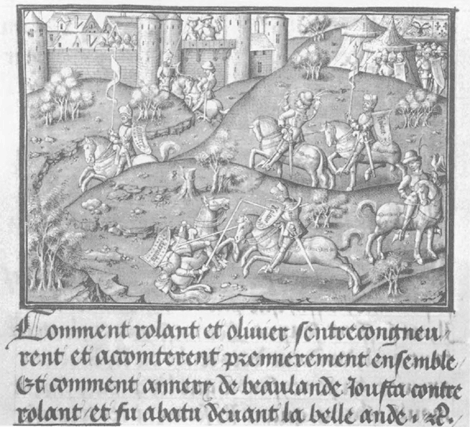 Comment rolant et oliuier sentrecongneu
rent et accointerent premierement ensemble
Et comment annery de beaulande Jousta contre
rolant et fu abatu deuant la belle aude .